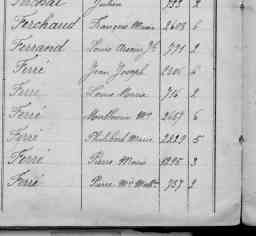 Julien 2
Ferchaud François Marie 2608 6
Ferrand Louis 991 2
Ferré Jean Joseph 6
Ferré Louis Marie 716 2
Ferré Mathurin Mie 2467 6
Ferré Philibert Marie 2829 5
Ferré Pierre Marie 1295 3
Ferré Pierre Mie 757 2